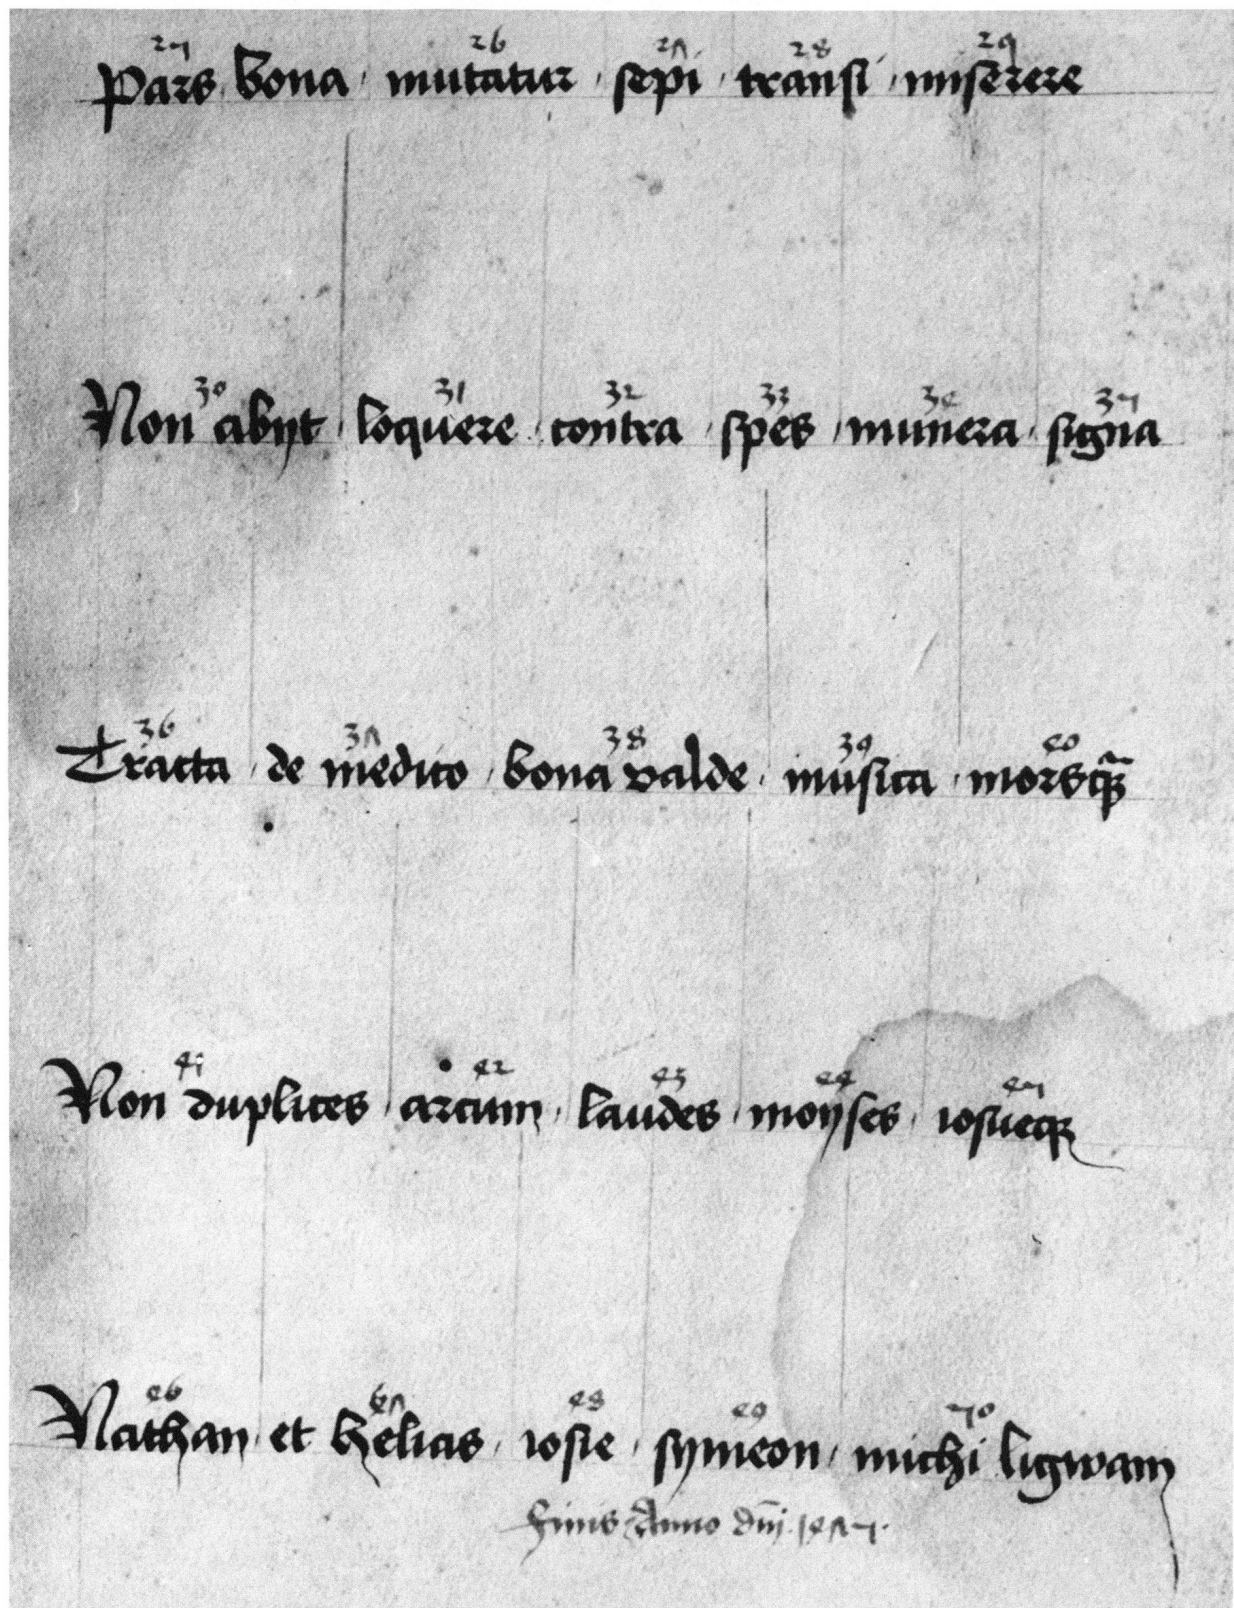 25 26 27 28 29
Pars bona mutatur sepi transi miserere
30 31 32 33 34 35
Non abijt loquere contra spes munera signa
36 37 38 39 40
Tracta de medico bona valde musica morsq3
41 42 43 44 45
Non duplices arcum laudes moyses iosueq3
46 47 48 49 50
Nathan et helias iosie symeon michi ligwam
Finis Anno dnj 1475